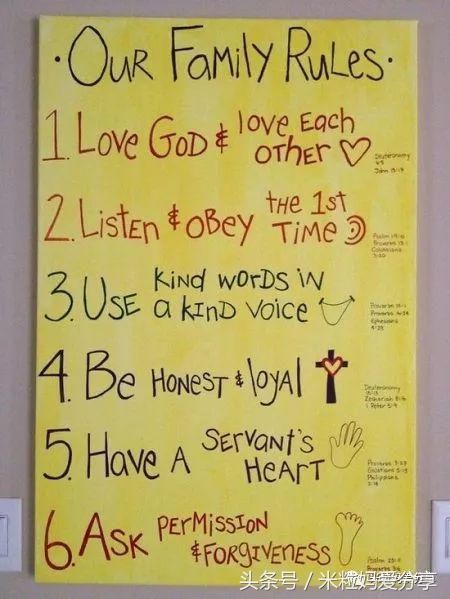 ·OUR FAMILY RULES·
1. LOVE GOD & love EACH
OTHER
Deuteronomy
6:5
John 13:34
2. LISTEN & OBEY THE 1ST
TIME
Colossians
3:20
3. USE KIND WORDS IN
A KIND VOICE
Ephesians
4:29
4. Be HONEST & loyal
Deuteronomy
Zechariah 8:16
1 Peter
5. HAVE A SERVANT'S
HEART
Proverbs
Galatians 5:13
Philippians
6. ASK PERMISSION
& FORGIVENESS
Psalm
Proverbs
头条号 / 米粒妈爱分享